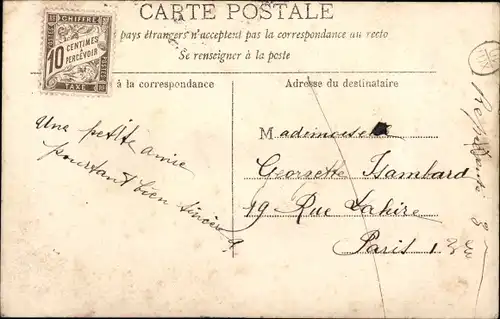 CARTE POSTALE
pays étrangers n'acceptent pas la correspondance au recto
Se renseigner à la poste
CHIFFRE
POSTES
10 CENTIMES
À
PERCEVOIR
TAXE
à la correspondance
Adresse du destinataire
Une petite amie
pourtant bien sincère
Mademoiselle
Georgette Isambard
19 Rue Lahire
Paris 13